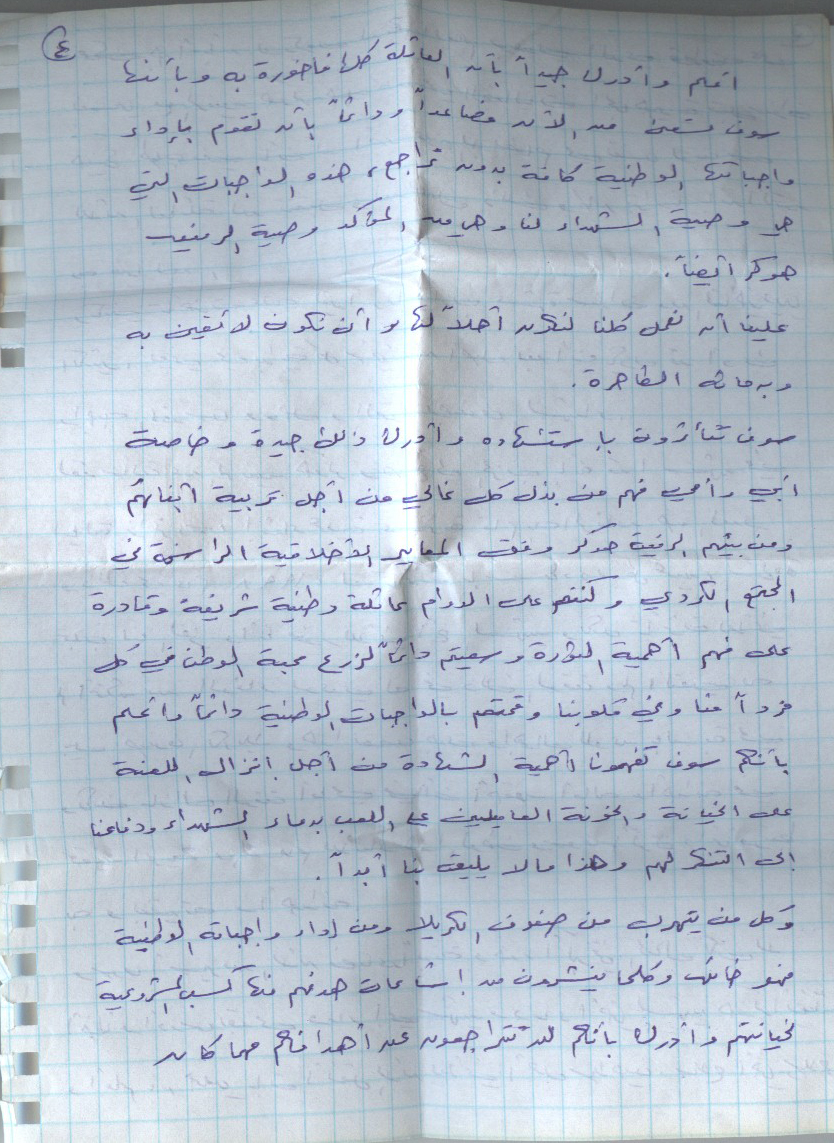 ٤
اعلم وأدرك جيداً بأن العائلة كلها فاخورة به وبأنها
سوف تسعى من الآن فصاعداً ودائماً بأن تقوم بإداء
واجباتها الوطنية كافة بدون تراجع، هذه الواجبات التي
هي وصية الشهداء لنا وهي من المؤكد وصية الرفيق
هوكر أيضاً.
علينا أن نعمل كلنا لنكون أهلاً لها وأن نكون لائقين به
وبدمائه الطاهرة.
سوف تتأثرون بإستشهاده وأدرك ذلك جيدة وخاصة
أبي وأمي فهم من بذل كل غالي من أجل تربية أبنائهم
ومن بينهم الرفيق هوكر وفق المعايير الأخلاقية الراسخة في
المجتمع الكردي وكنتم على الدوام عائلة وطنية شريفة وقادرة
على فهم أهمية الثورة وسعيتم دائماً لزرع محبة الوطن في كل
فرداً منا وفي قلوبنا وقمتم بالواجبات الوطنية دائماً واعلم
بأنكم سوف تفهمون أهمية الشهادة من أجل انزال اللعنة
على الخيانة والخونة العاملين على اللعب بدماء الشهداء ودفعنا
إلى التنكر لهم وهذا مالا يليق بنا أبداً.
وكل من يتهرب من صفوف الكريلا ومن أداء واجباته الوطنية
فهو خائن وكلما ينشرون من اشاعات هدفهم منها كسب المشروعية
لخيانتهم وأدرك بأنكم لن تتراجعون عن أهدافكم مهما كان